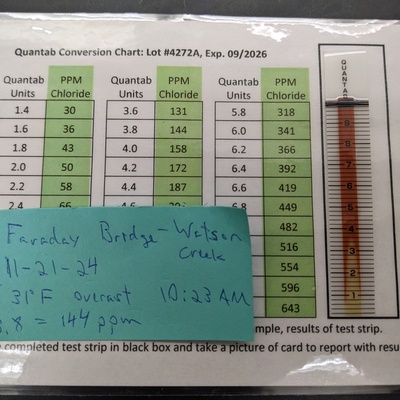 Quantab Conversion Chart: Lot #4272A, Exp. 09/2026
Quantab Units PPM Chloride Quantab Units PPM Chloride Quantab Units PPM Chloride
1.4 30 3.6 131 5.8 318
1.6 36 3.8 144 6.0 341
1.8 43 4.0 158 6.2 366
2.0 50 4.2 172 6.4 392
2.2 58 4.4 187 6.6 419
2.4 66 4.6 6.8 449
482
516
554
596
643
QUANTAB
9
8
7
6
5
4
3
2
1
Faraday Bridge - Watson
Creek
11-21-24
31°F overcast 10:23 AM
3.8 = 144 ppm
mple, results of test strip.
completed test strip in black box and take a picture of card to report with resu